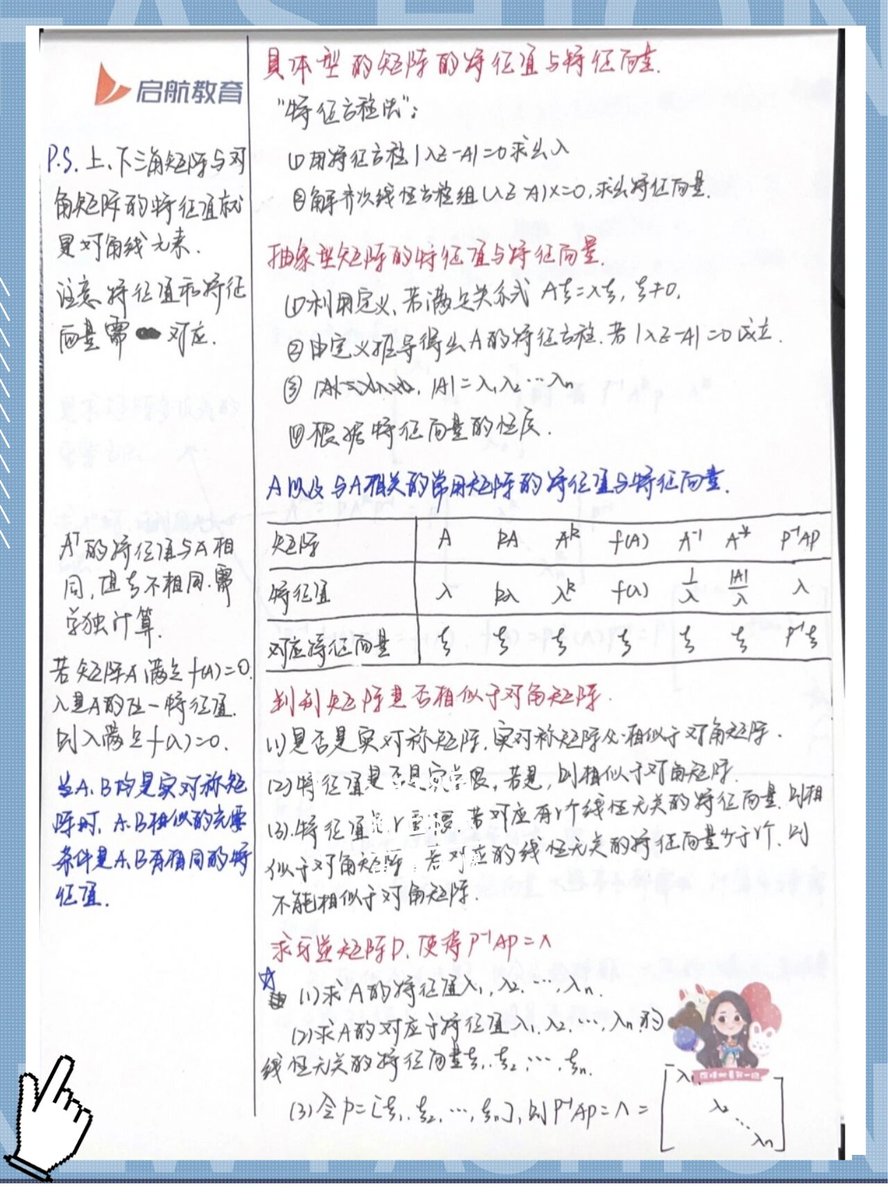 FASHION
启航教育
P.S. 上、下三角矩阵与对
角矩阵的特征值就
是对角线元素.
注意,特征值和特征
向量需 对应.
A^T的特征值与A相
同,但ξ不相同.需
单独计算.
若矩阵A满足f(A)=0.
λ是A的任一特征值.
则λ满足f(λ)=0.
当A、B均是实对称矩
阵时, A、B相似的充要
条件是A、B有相同的特
征值.
具体型的矩阵的特征值与特征向量.
"特征方程法":
①用特征方程|λE-A|=0求出λ
②解齐次线性方程组(λE-A)x=0,求出特征向量.
抽象型矩阵的特征值与特征向量
①利用定义,若满足关系式 Aξ=λξ, ξ≠0.
②由定义推导得出A的特征方程.若|λE-A|=0成立.
③ |A|=λ₁λ₂…λn
④根据特征向量的性质.
A以及与A相关的常用矩阵的特征值与特征向量.
矩阵 A kA A^k f(A) A^-1 A^* P^-1AP
特征值 λ kλ λ^k f(λ) 1/λ |A|/λ λ
对应特征向量 ξ ξ ξ ξ ξ ξ P^-1ξ
判别矩阵是否相似于对角矩阵.
(1)是否是实对称矩阵.实对称矩阵必相似于对角矩阵.
(2)特征值是否是实单根,若是,则相似于对角矩阵.
(3).特征值是r重要 若对应有r个线性无关的特征向量.则相
似于对角矩阵 若对应的线性无关的特征向量少于r个.则
不能相似于对角矩阵.
求可逆矩阵P.使得P^-1AP=Λ
(1)求A的特征值λ₁,λ₂,…,λn.
(2)求A的对应于特征值λ₁,λ₂,…,λn.的
线性无关的特征向量ξ₁,ξ₂,…,ξn.
(3)令P=[ξ₁,ξ₂,…,ξn],则P^-1AP=Λ=
λ₁
λ₂
⋱
λn